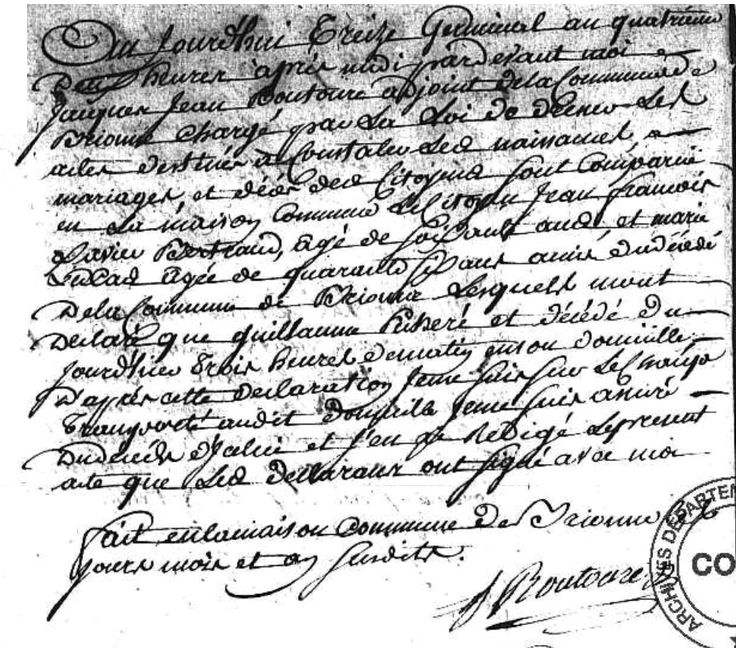 Du Jourdhui Treize Germinal an quatrieme
Deux heures après midi pardevant moi
Jacques Jean Boutoure adjoint dela Commune de
Brionne chargé par La Loi de
actes destinés à Constater Les naissances,
mariages, et décès des Citoyens sont Comparu
en La maison Commune Le Citoyen Jean francois
Xavier Bertrand, agé de soixante ans, et marie
agée de quarante six ans amis du décédé
De la Commune de Brionne Lesquels mont
Declaré que guillaume et décédé du
Jourdhui trois heures du matin en son domicille
D'après cette declaration Jeme suis sur Le Champ
transporté audit domicille Jeme suis assuré
Dudécès et J'en ai Redigé Le present
acte que Les declarans ont signé avec moi
fait en la maison commune de Brionne Les
jours mois et an susdits.
J Boutoure
ARCHIVES DÉPARTEM
CO